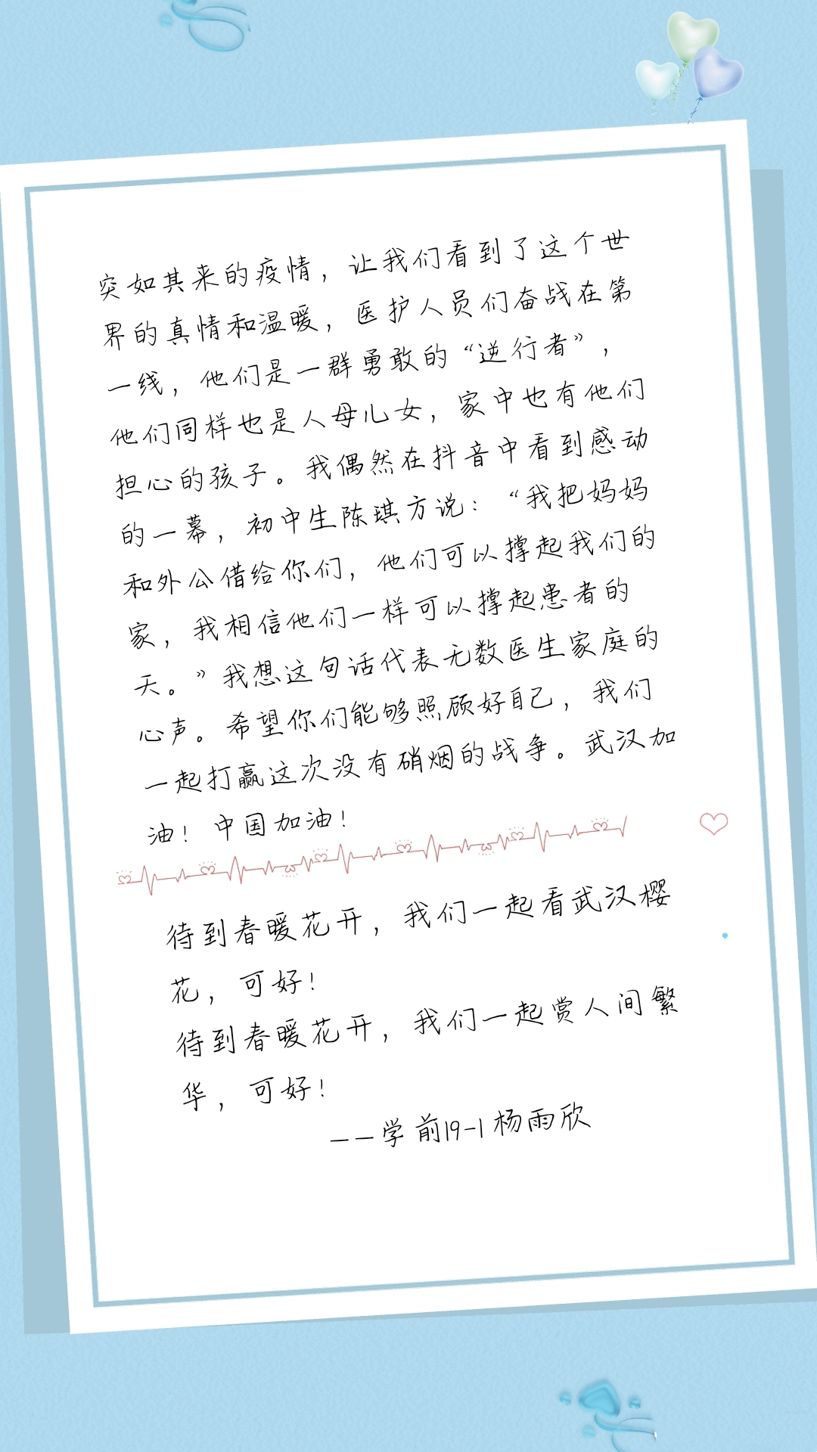 突如其来的疫情，让我们看到了这个世
界的真情和温暖，医护人员们奋战在第
一线，他们是一群勇敢的“逆行者”，
他们同样也是人母儿女，家中也有他们
担心的孩子。我偶然在抖音中看到感动
的一幕，初中生陈琪方说：“我把妈妈
和外公借给你们，他们可以撑起我们的
家，我相信他们一样可以撑起患者的
天。”我想这句话代表无数医生家庭的
心声。希望你们能够照顾好自己，我们
一起打赢这次没有硝烟的战争。武汉加
油！中国加油！
待到春暖花开，我们一起看武汉樱
花，可好！
待到春暖花开，我们一起赏人间繁
华，可好！
——学前19-1杨雨欣